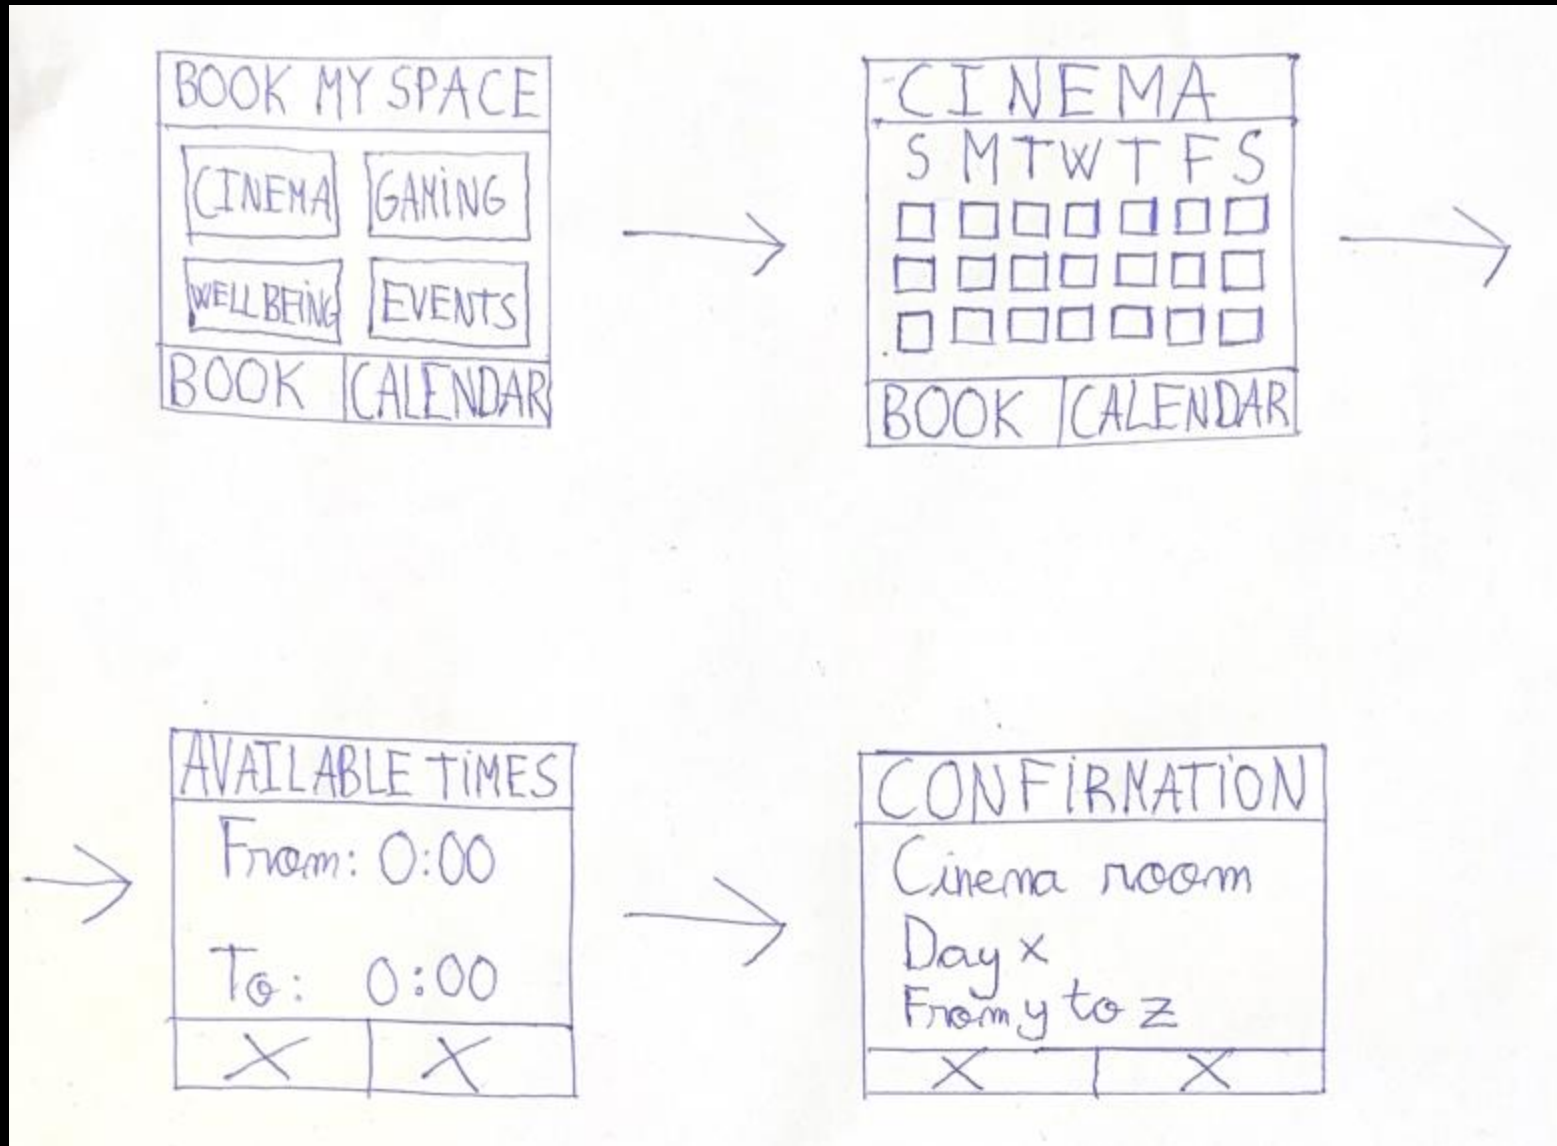 BOOK MY SPACE
CINEMA GAMING
WELLBEING EVENTS
BOOK CALENDAR
CINEMA
S M T W T F S
BOOK CALENDAR
AVAILABLE TIMES
From: 0:00
To: 0:00
X X
CONFIRMATION
Cinema room
Day x
From y to z
X X